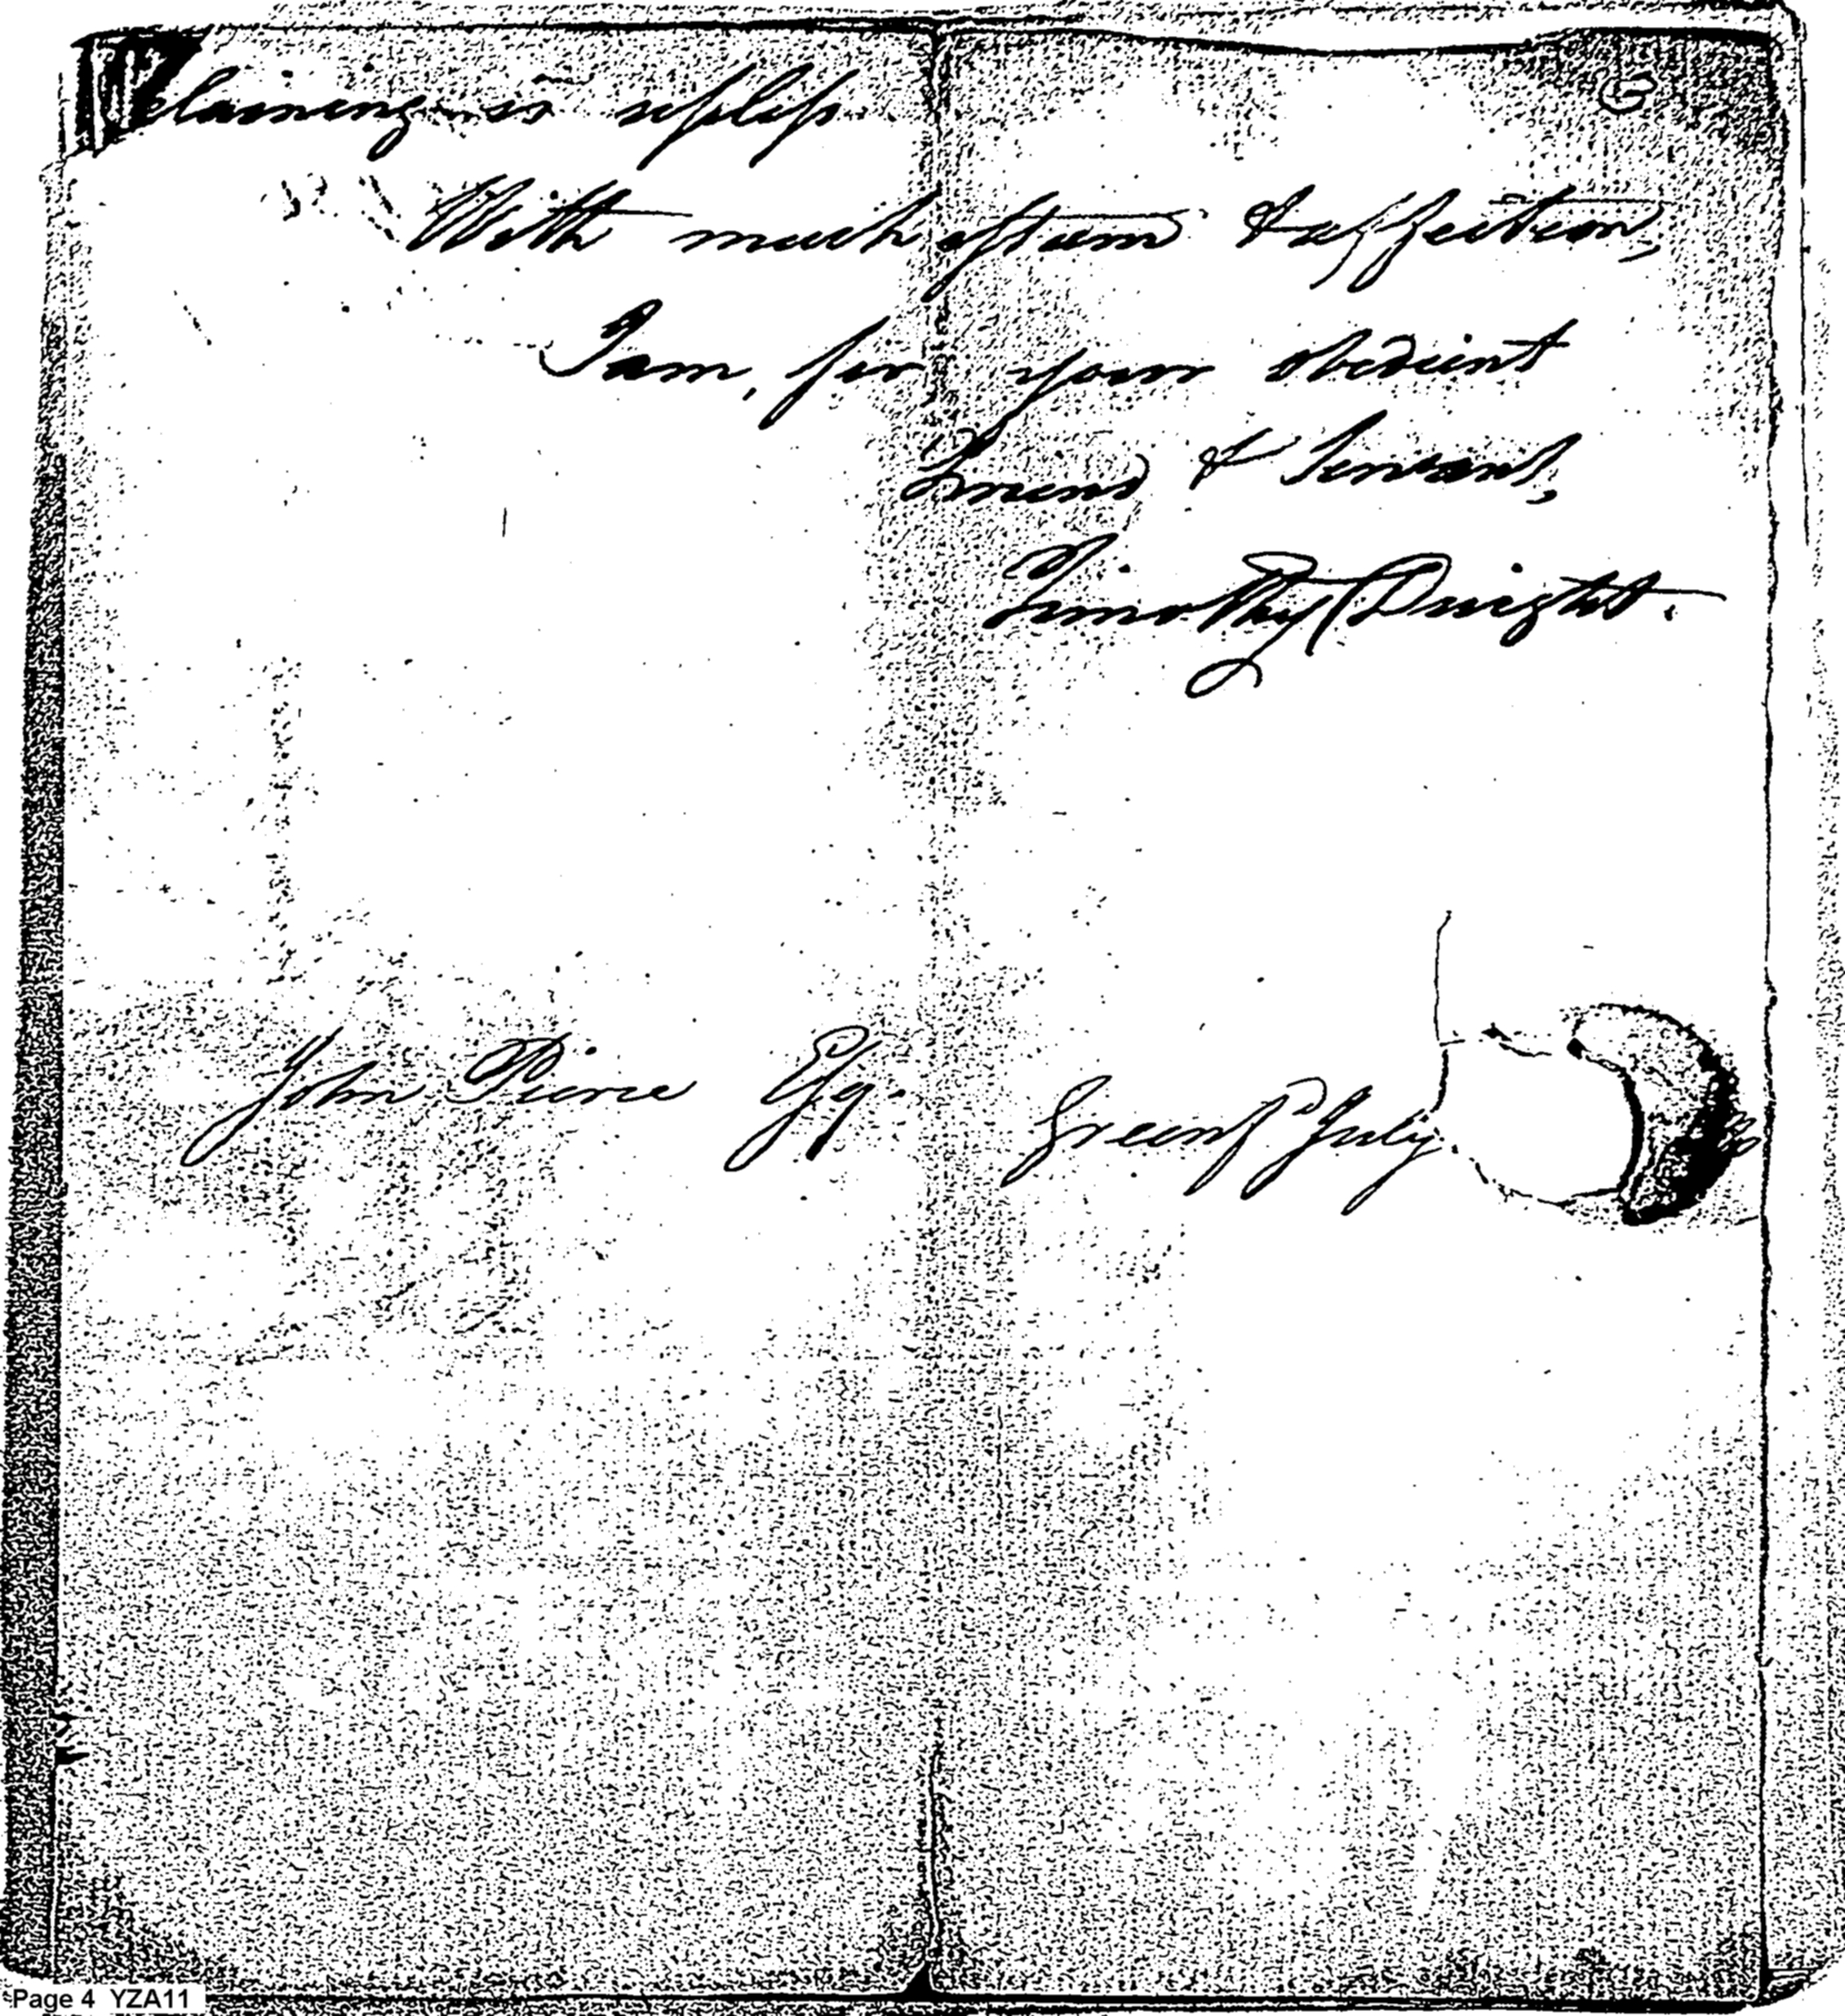 plaining is useless
With much esteem & affection,
I am, sir your obedient
Friend & Servant,
Timothy Dwight.
John Pierce Esq. Greenfd July
Page 4 YZA11